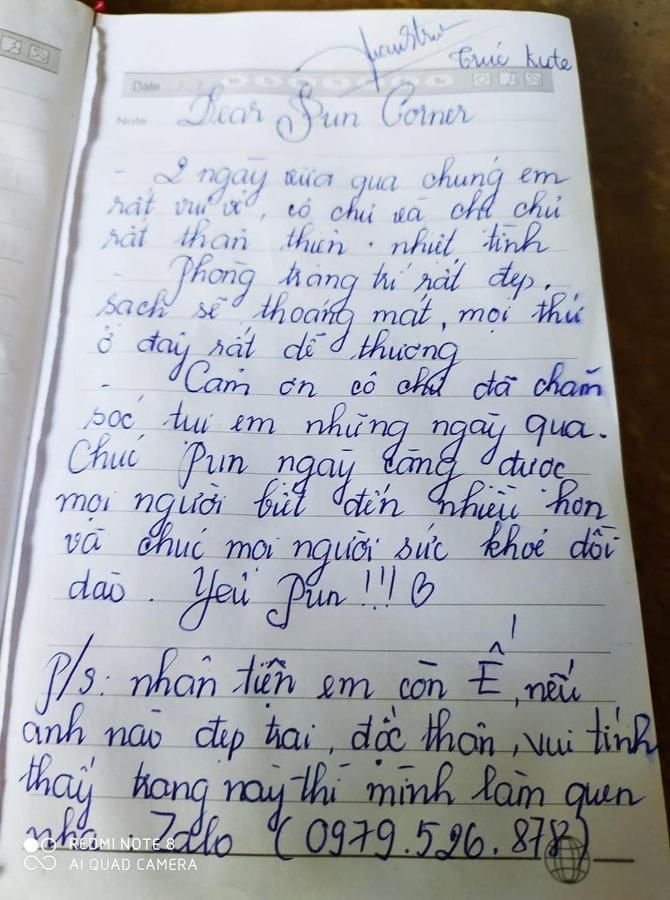 Trúc kute
Date
Dear Pun Corner
Note
- 2 ngày vừa qua chúng em
rất vui vẻ, cô chú và chú
rất thân thiện, nhiệt tình
- Phòng trang trí rất đẹp,
sạch sẽ, thoáng mát, mọi thứ
ở đây rất dễ thương
- Cảm ơn cô chú đã chăm
sóc tụi em những ngày qua.
Chúc Pun ngày càng được
mọi người biết đến nhiều hơn
và chúc mọi người sức khoẻ dồi
dào. Yêu Pun!!!
P/s: nhân tiện em còn Ế, nếu
anh nào đẹp trai, độc thân, vui tính
thấy trang này thì mình làm quen
nha. Zalo (0979.526.878)
REDMI NOTE 8
AI QUAD CAMERA